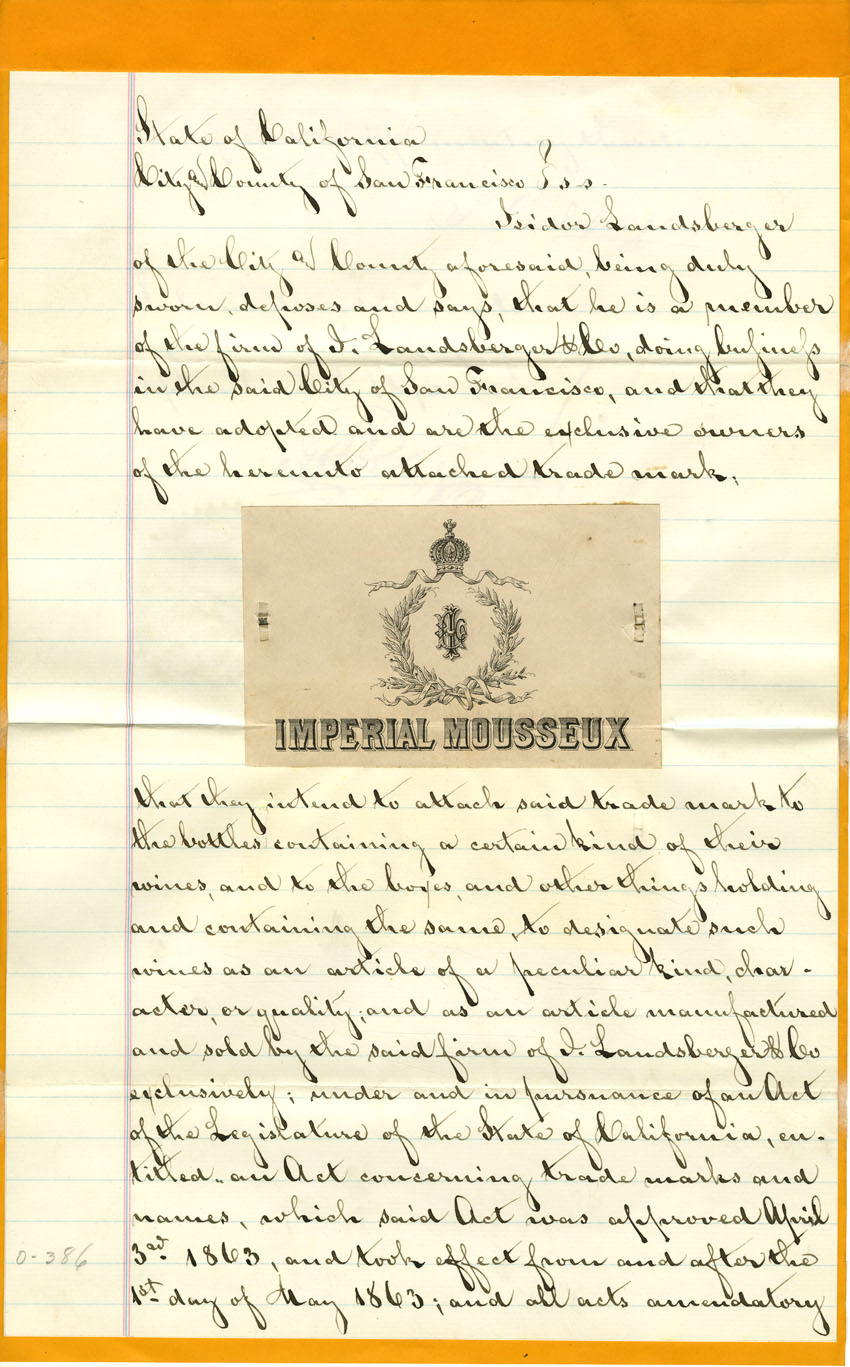 State of California
City & County of San Francisco } ss.
Isidor Landsberger
of the City & County aforesaid, being duly
sworn, deposes and says, that he is a member
of the firm of I. Landsberger & Co, doing business
in the said City of San Francisco, and that they
have adopted and are the exclusive owners
of the hereunto attached trade mark;
IMPERIAL MOUSSEUX
that they intend to attach said trade mark to
the bottles containing a certain kind of their
wines, and to the boxes, and other things holding
and containing the same, to designate such
wines as an article of a peculiar kind, char-
acter, or quality; and as an article manufactured
and sold by the said firm of I. Landsberger & Co
exclusively; under and in pursuance of an Act
of the Legislature of the State of California, en-
titled „ an Act concerning trade marks and
names, which said Act was approved April
3rd. 1863, and took effect from and after the
1st day of May 1863; and all acts amendatory
0-386